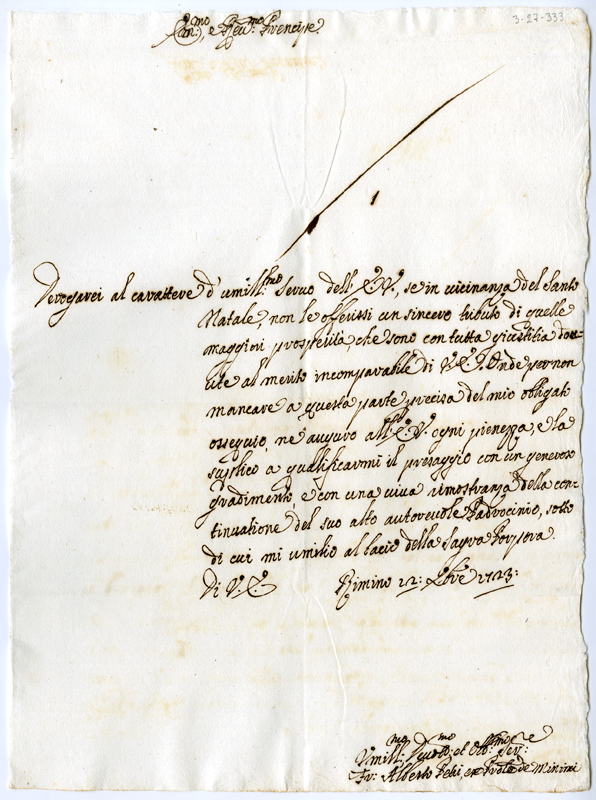 3-27-333
Em.mo, e Reu.mo Prencipe
Derogarei al carattere d'umill.mo Seruo dell' E.V., se in uicinanza del Santo
Natale, non le offerissi un sincero tributo di quelle
maggiori prosperità, che sono con tutta giustitia dou-
ute al merito incomparabile di V.E. Onde per non
mancare a questa parte precisa del mio obligato
ossequio, ne auguro all' E.V. ogni pienezza, e la
suplico a qualificarmi il presaggio con un generoso
gradimento, e con una uiua rimostranza della con-
tinuatione del suo alto autoreuole Padrocinio, sotto
di cui mi umilio al bacio della Sagra Porpora.
Di V.E. Rimino 22: Xbre 1723:
Vmill.mo Deuot.mo et Obb.mo Ser.e
Fr: Alberto ex Prole de Minimi